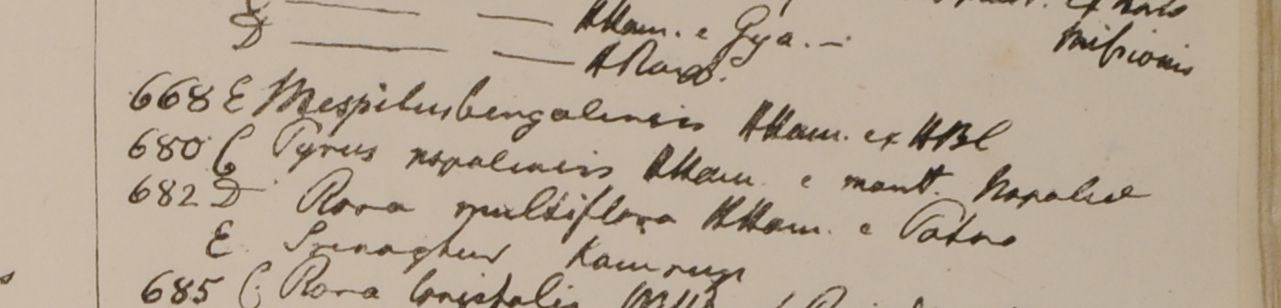 D — — HHam. e Gya. — Missionis
— HRoxb.
668 E Mespilus bengalensis HHam. ex HBC
680 C Pyrus nepalensis HHam. e mont. Napaliæ
682 D Rosa multiflora HHam. e Patna
E Srinaghur Kamrup
685 C Rosa